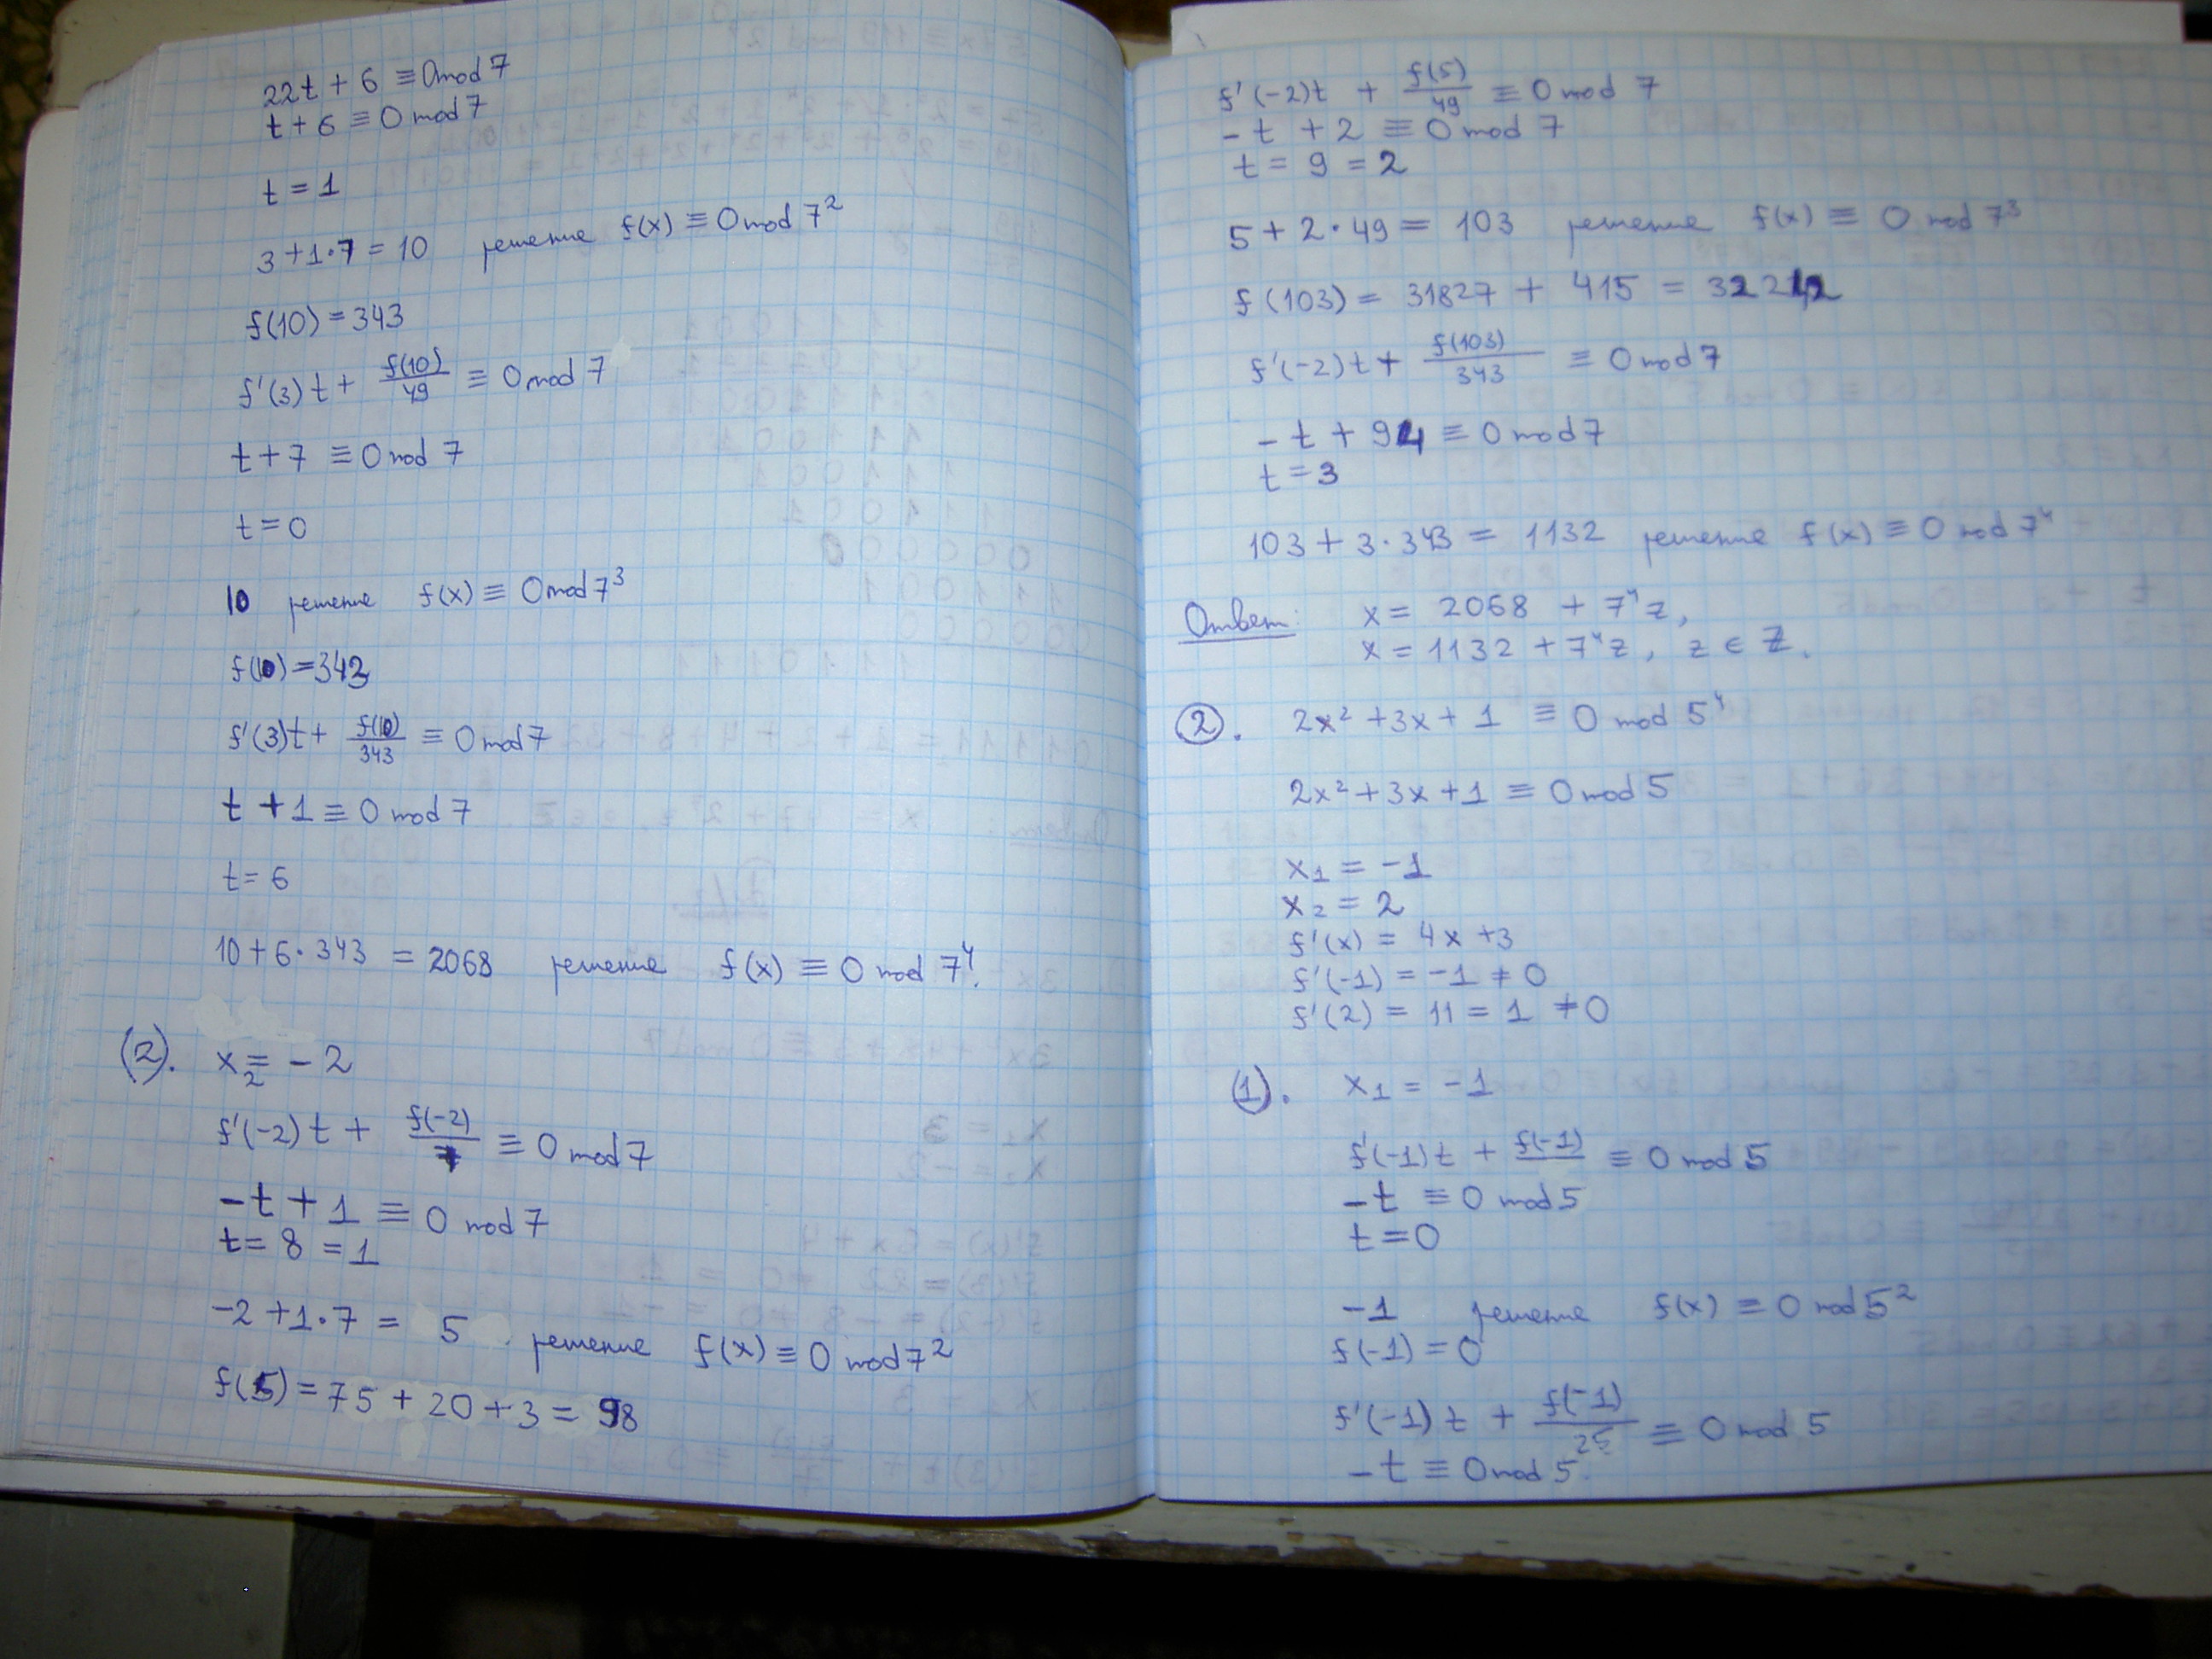 22t + 6 ≡ 0 mod 7
t + 6 ≡ 0 mod 7
t = 1
3 + 1·7 = 10 решение f(x) ≡ 0 mod 7²
f(10) = 343
f'(3)t + f(10)/49 ≡ 0 mod 7
t + 7 ≡ 0 mod 7
t = 0
10 решение f(x) ≡ 0 mod 7³
f(10) = 343
f'(3)t + f(10)/343 ≡ 0 mod 7
t + 1 ≡ 0 mod 7
t = 6
10 + 6·343 = 2068 решение f(x) ≡ 0 mod 7⁴.
(2). x₂ = -2
f'(-2)t + f(-2)/7 ≡ 0 mod 7
-t + 1 ≡ 0 mod 7
t = 8 = 1
-2 + 1·7 = 5 решение f(x) ≡ 0 mod 7²
f(5) = 75 + 20 + 3 = 98
f'(-2)t + f(5)/49 ≡ 0 mod 7
-t + 2 ≡ 0 mod 7
t = 9 = 2
5 + 2·49 = 103 решение f(x) ≡ 0 mod 7³
f(103) = 31827 + 415 = 32242
f'(-2)t + f(103)/343 ≡ 0 mod 7
-t + 94 ≡ 0 mod 7
t = 3
103 + 3·343 = 1132 решение f(x) ≡ 0 mod 7⁴
Ответ: x = 2068 + 7⁴z,
x = 1132 + 7⁴z, z ∈ Z.
2. 2x² + 3x + 1 ≡ 0 mod 5⁴
2x² + 3x + 1 ≡ 0 mod 5
x₁ = -1
x₂ = 2
f'(x) = 4x + 3
f'(-1) = -1 ≠ 0
f'(2) = 11 = 1 ≠ 0
(1). x₁ = -1
f'(-1)t + f(-1)/ ≡ 0 mod 5
-t ≡ 0 mod 5
t = 0
-1 решение f(x) ≡ 0 mod 5²
f(-1) = 0
f'(-1)t + f(-1)/25 ≡ 0 mod 5
-t ≡ 0 mod 5.